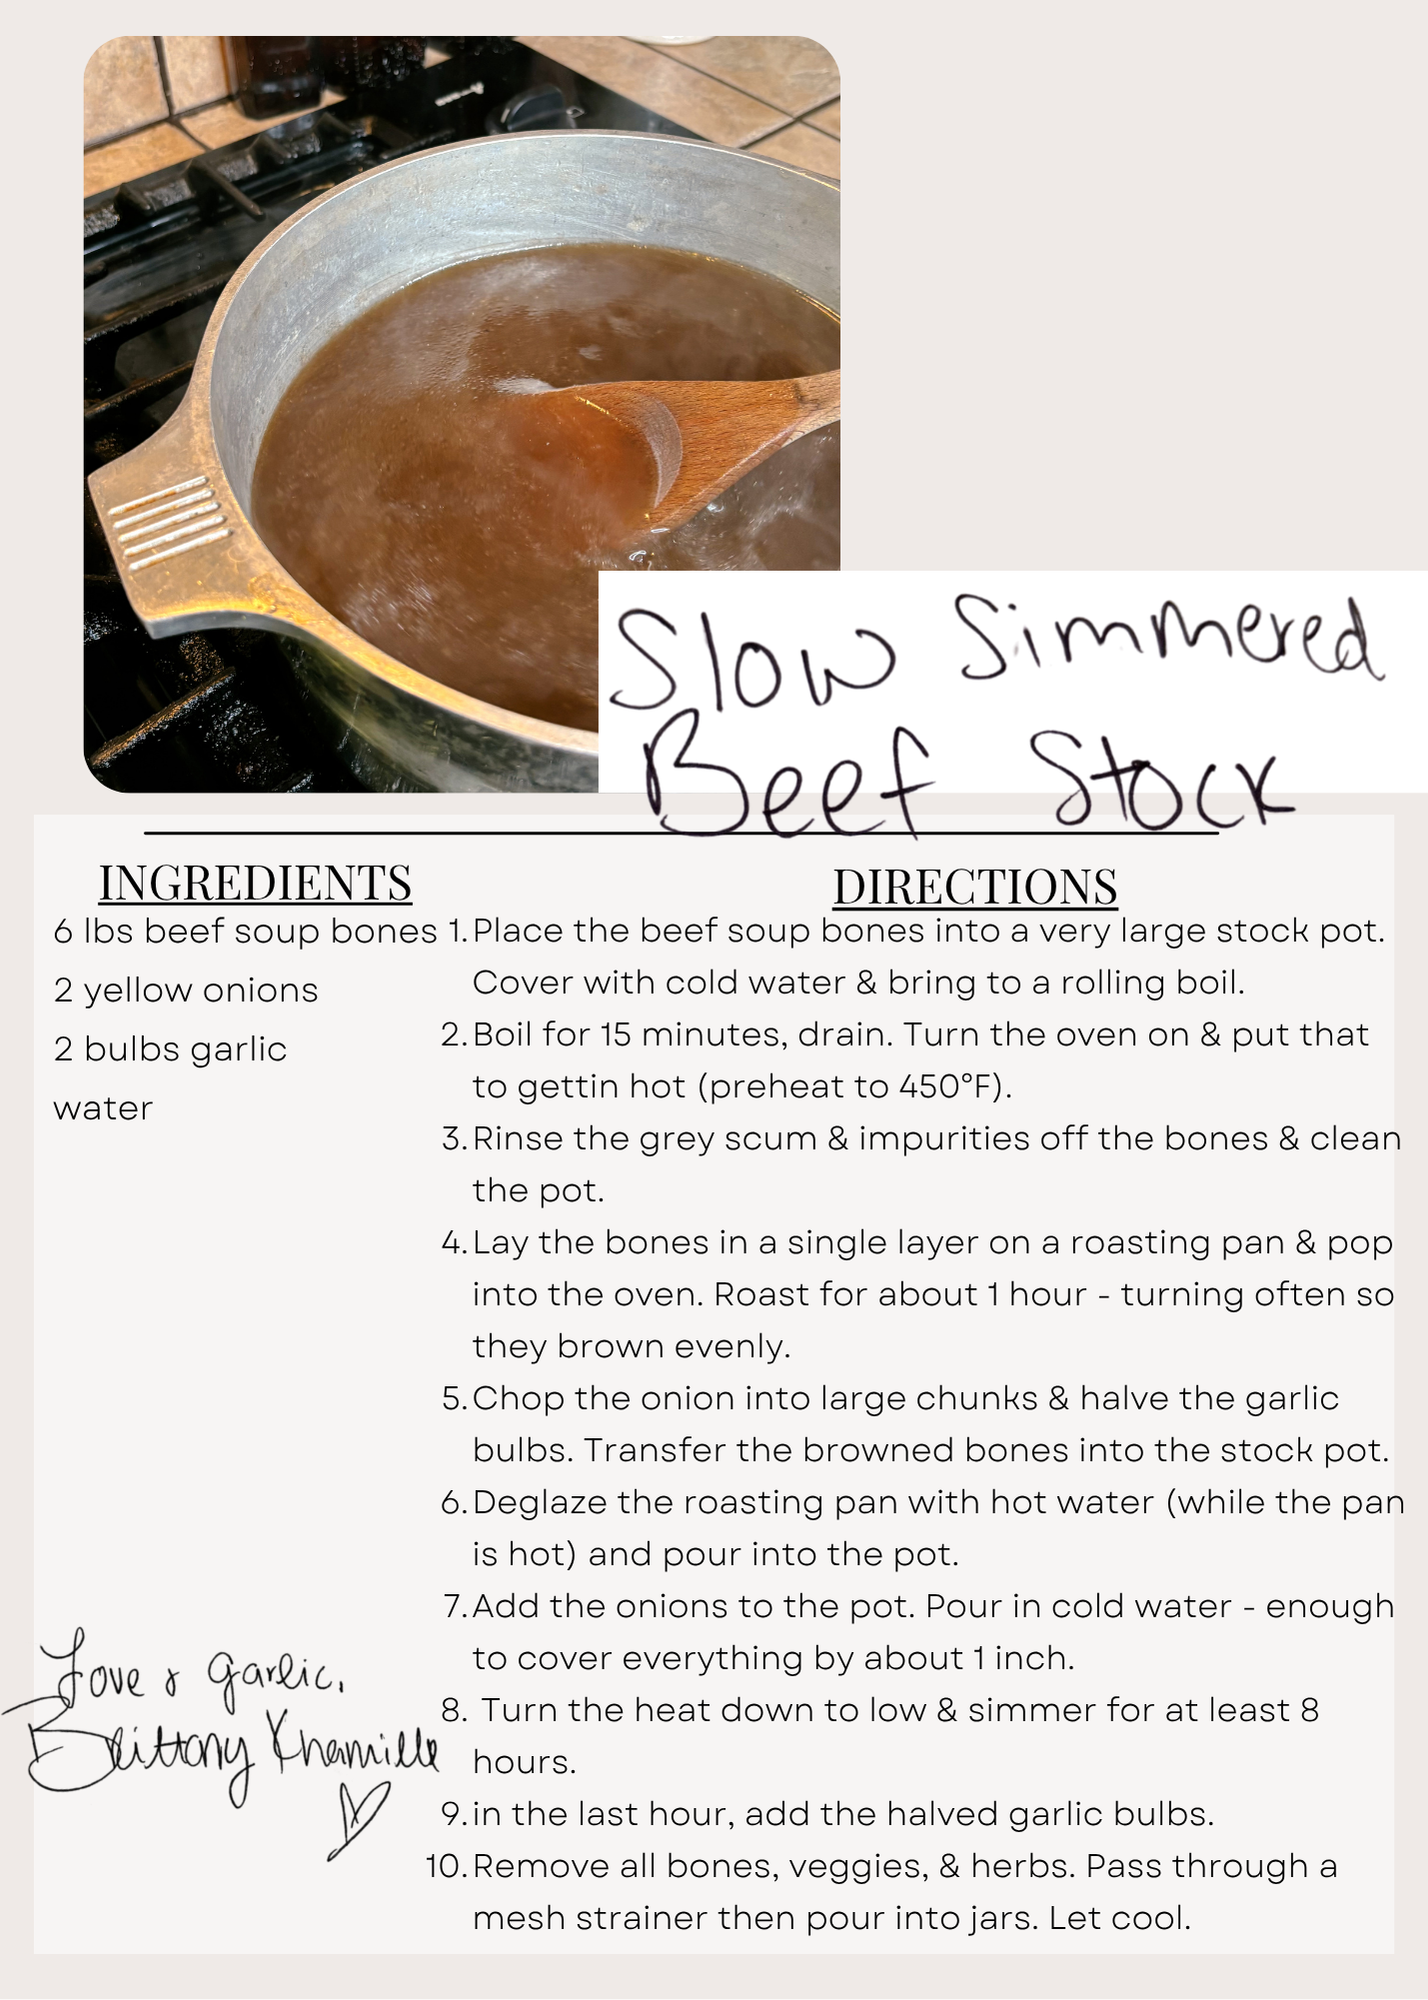 Slow Simmered
Beef Stock
INGREDIENTS
6 lbs beef soup bones
2 yellow onions
2 bulbs garlic
water
DIRECTIONS
1. Place the beef soup bones into a very large stock pot.
Cover with cold water & bring to a rolling boil.
2. Boil for 15 minutes, drain. Turn the oven on & put that
to gettin hot (preheat to 450°F).
3. Rinse the grey scum & impurities off the bones & clean
the pot.
4. Lay the bones in a single layer on a roasting pan & pop
into the oven. Roast for about 1 hour - turning often so
they brown evenly.
5. Chop the onion into large chunks & halve the garlic
bulbs. Transfer the browned bones into the stock pot.
6. Deglaze the roasting pan with hot water (while the pan
is hot) and pour into the pot.
7. Add the onions to the pot. Pour in cold water - enough
to cover everything by about 1 inch.
8. Turn the heat down to low & simmer for at least 8
hours.
9. in the last hour, add the halved garlic bulbs.
10. Remove all bones, veggies, & herbs. Pass through a
mesh strainer then pour into jars. Let cool.
Love & garlic,
Brittony Khamille